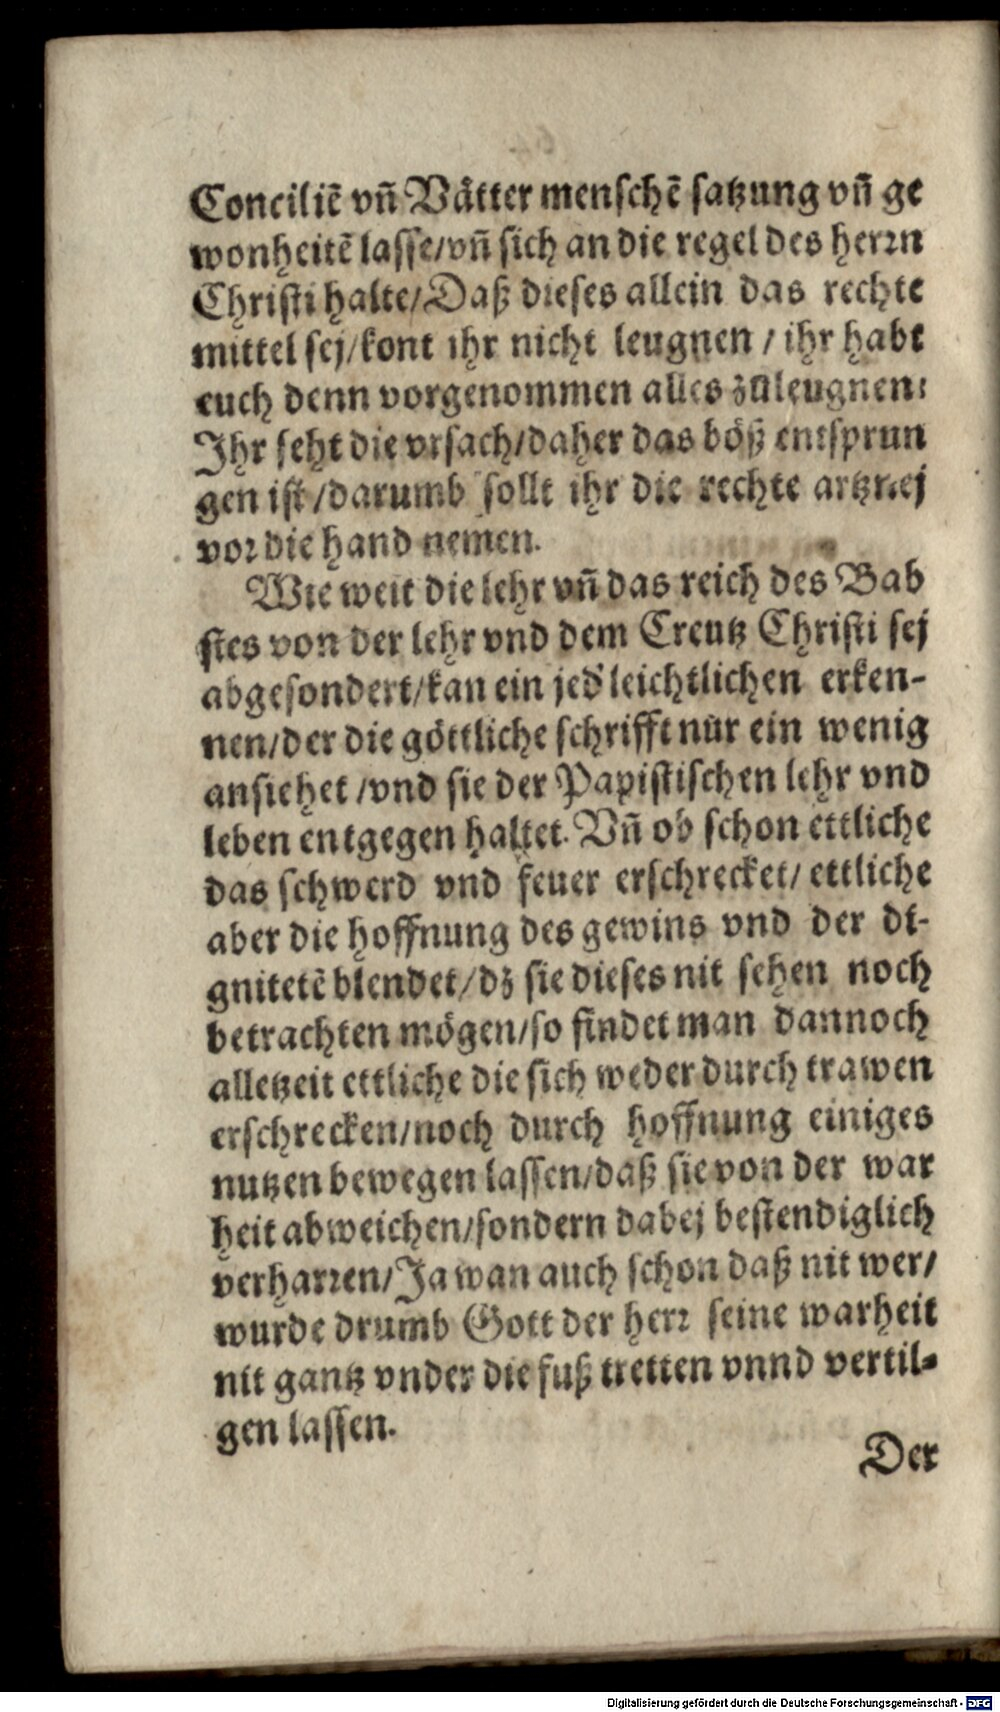 Conciliẽ vñ Våtter menschẽ satzung vñ ge
wonheitẽ lasse/vñ sich an die regel des herrn
Christi halte/Daß dieses allein das rechte
mittel sej/kont ihr nicht leugnen / ihr habt
euch denn vorgenommen alles zůleugnen:
Ihr seht die vrsach/daher das böß entsprun
gen ist /darumb sollt ihr die rechte artznej
vor die hand nemen.
Wie weit die lehr vñ das reich des Bab
stes von der lehr vnd dem Creutz Christi sej
abgesondert/kan ein jed' leichtlichen erken-
nen/der die göttliche schrifft nur ein wenig
ansiehet /vnd sie der Papistischen lehr vnd
leben entgegen haltet. Vñ ob schon ettliche
das schwerd vnd feuer erschrecket/ ettliche
aber die hoffnung des gewins vnd der di-
gnitetẽ blendet/dz sie dieses nit sehen noch
betrachten mögen/so findet man dannoch
alletzeit ettliche die sich weder durch trawen
erschrecken/noch durch hoffnung einiges
nutzen bewegen lassen/daß sie von der war
heit abweichen/sondern dabej bestendiglich
verharren/Ja wan auch schon daß nit wer/
wurde drumb Gott der herr seine warheit
nit gantz vnder die fuß tretten vnnd vertil-
gen lassen.
Der
Digitalisierung gefördert durch die Deutsche Forschungsgemeinschaft - DFG